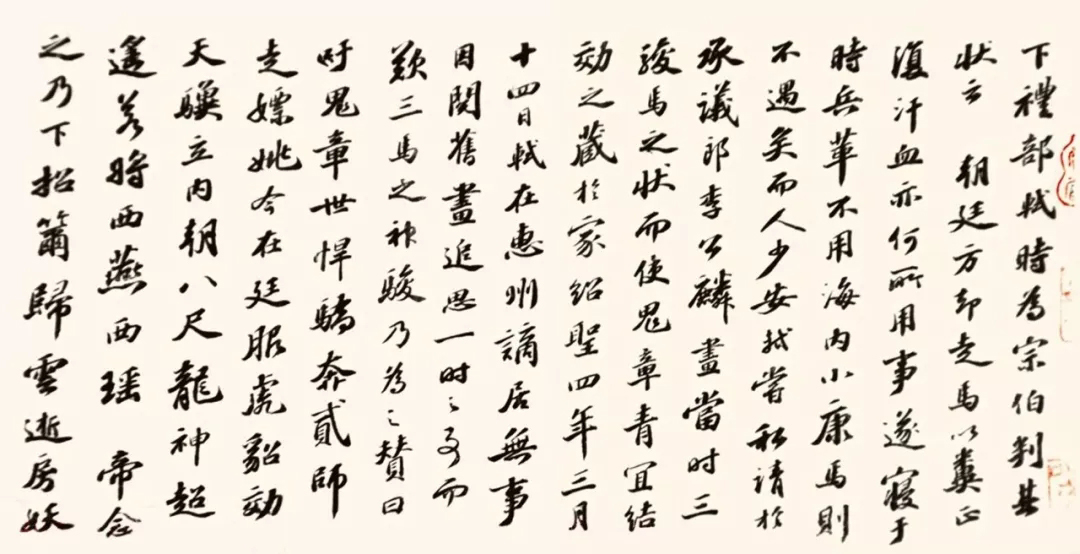 下禮部軾時為宗伯判其
状云 朝廷方却走馬以糞正
復汗血亦何所用事遂寢于
時兵革不用海内小康馬則
不遇矣而人少安軾嘗私請於
承議郎李公麟畫當时三
駿馬之状而使鬼章青宜结
効之藏於家紹聖四年三月
十四日軾在惠州謫居無事
因閱舊畫追思一时之事而
歎三馬之神駿乃為之贊曰
吁鬼章世悍驕奔貳師
走嫖姚今在廷服虎貂効
天驥立内朝八尺龍神超
遥若将西燕西瑶 帝念
之乃下招籋歸雲逝房妖